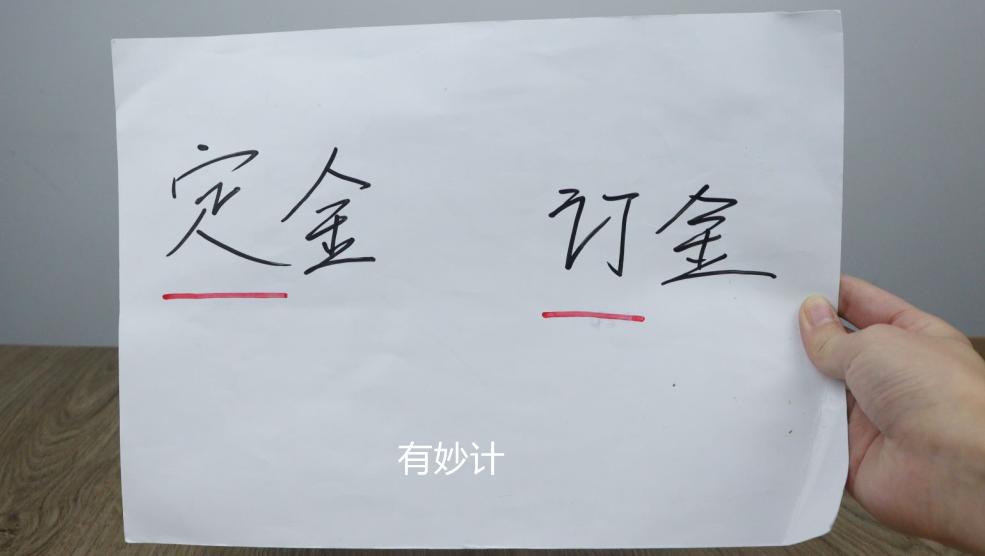 定金 订金
有妙计